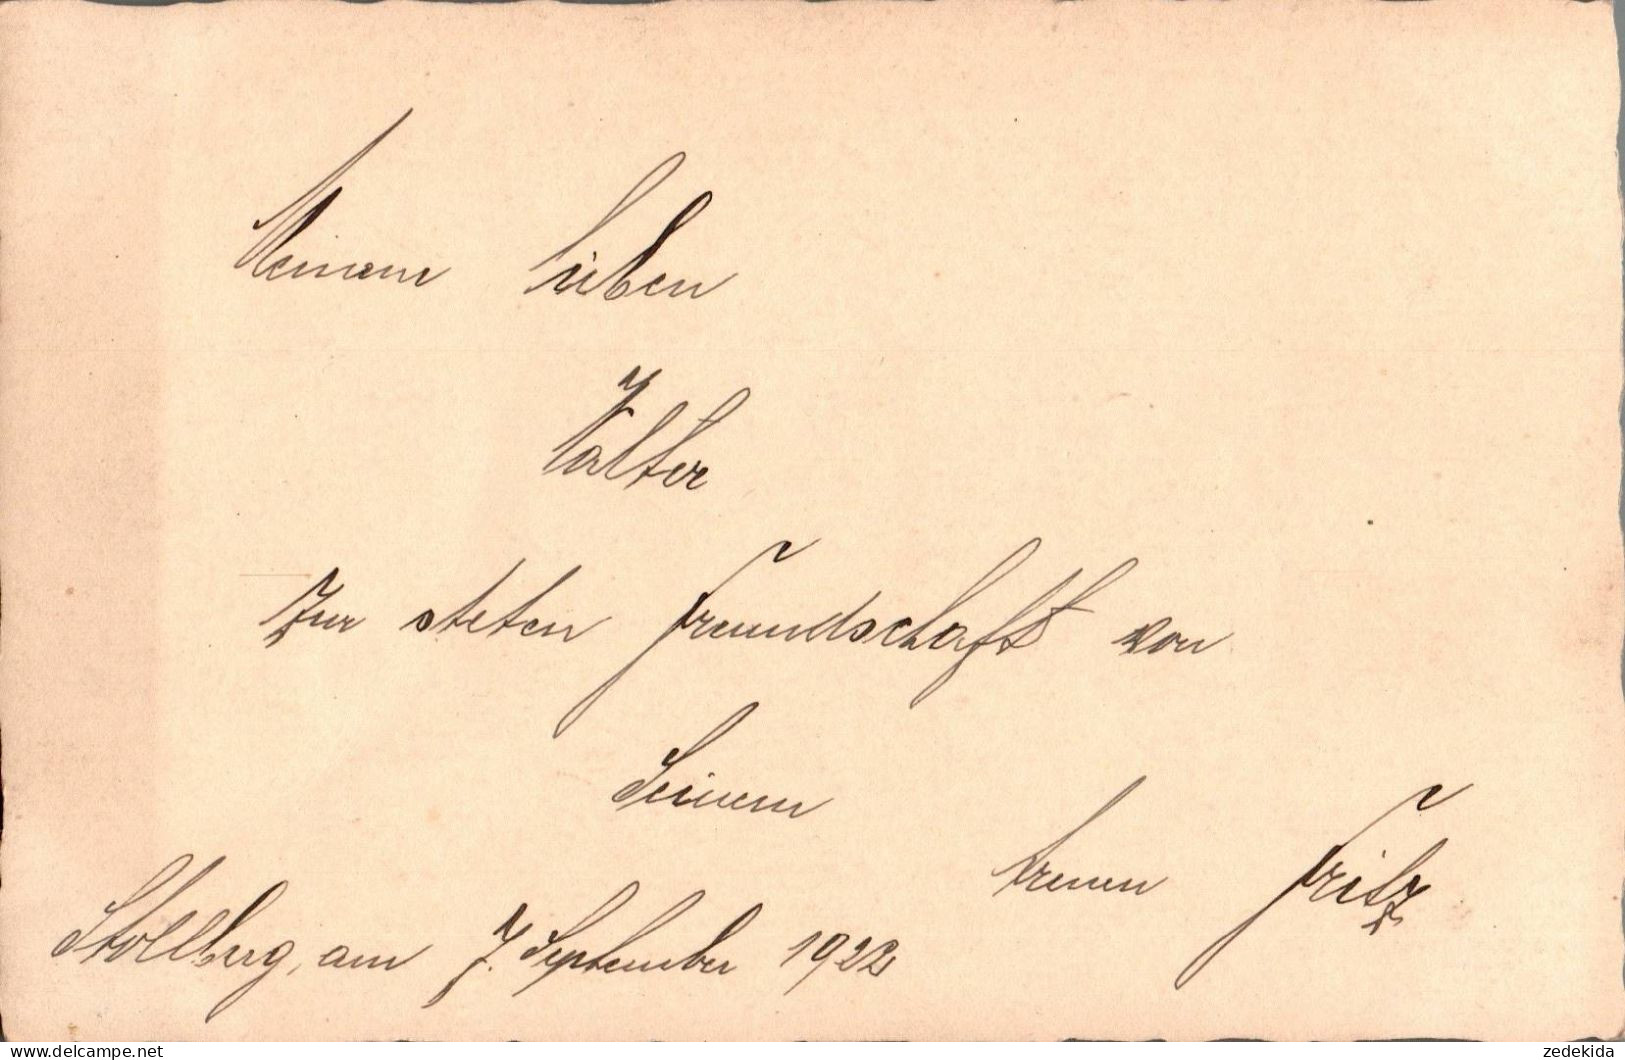 Meinem lieben
Walter
zur steten Freundschaft von
Seinem
treuen Fritz
Stollberg, am 7. September 1922
zedekida